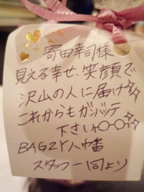 寄田幸司様
見える幸せ、笑顔で
沢山の人に届け
これからもガンバッテ
下さい
BAGZY八中番
スタッフ一同より